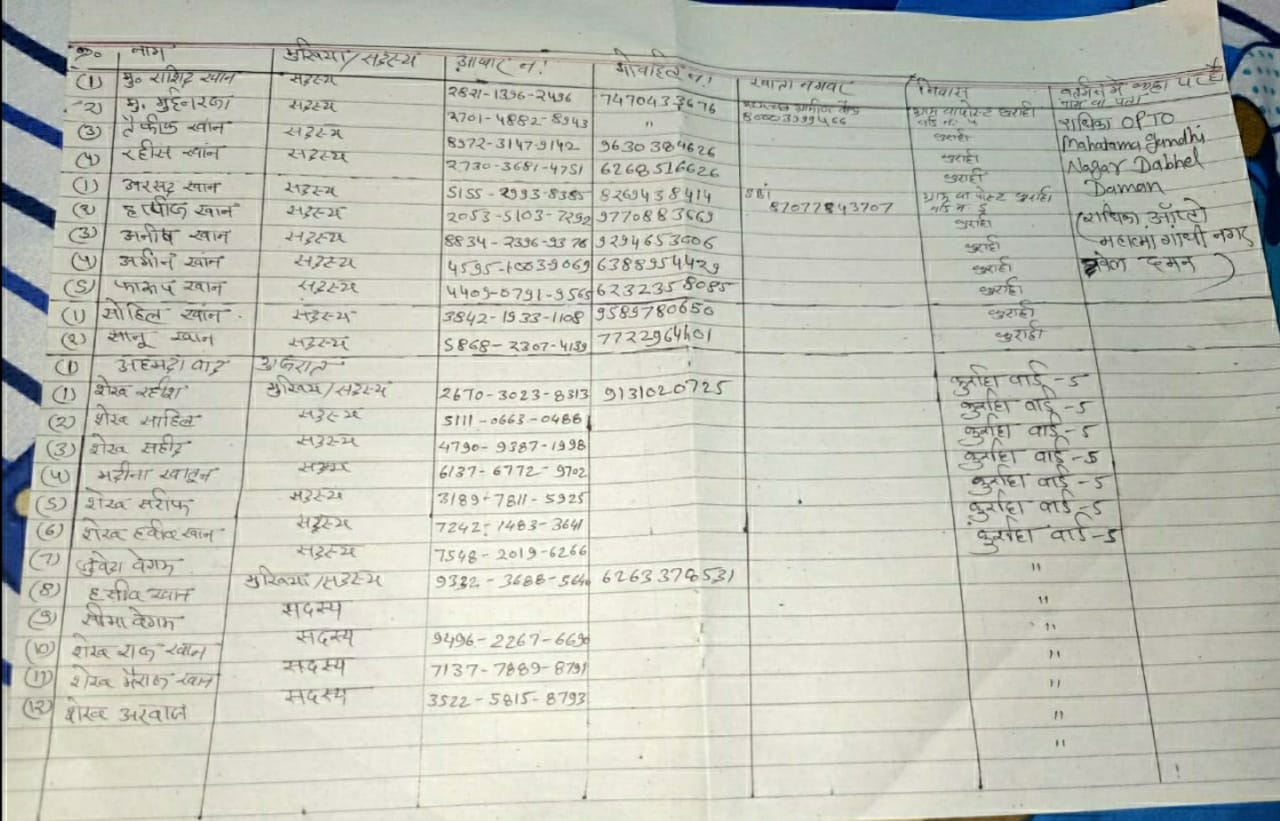 क्र० नाम मुखिया/सदस्य आधार न! मोबाईल न! खाता नम्बर निवास वर्तमान में कहा पर है नाम व पता
(1) मु० राशिद खान सदस्य 2821-1396-2496 7470433676
(2) मु. सदस्य 2701-4882-8943 " ग्राम व पोस्ट कुराही राधिका OPTO
(3) तौफीक खान सदस्य 8972-3147-9142 9630384626 कुराही Mahatama Gandhi
(4) रहीस खान सदस्य 2730-3681-4751 6268516626 कुराही Nagar Dabhel
कुराही Daman
(1) अरसद खान सदस्य 5155-2993-8385 8269438414 SBI 82077843707 ग्राम व पोस्ट कुराही
(2) हफीज खान सदस्य 2053-5103-7292 9770883669 कुराही (राधिका ऑप्टो
(3) अनीष खान सदस्य 8834-2396-9376 9294653606 कुराही महात्मा गांधी नगर
(4) अमीन खान सदस्य 4595-10039069 6388954429 कुराही दमन)
(5) खान सदस्य 4409-0791-9565 6232358085 कुराही
(1) सोहिल खान. सदस्य 3842-1933-1108 9589780650 कुराही
(2) सानू खान सदस्य 5868-2307-4139 7722964401 कुराही
(1) अहमदाबाद गुजरात
(1) शेख रहीश मुखिया/सदस्य 2670-3023-8313 9131020725 कुर्राहा वार्ड-5
(2) शेख साहिल सदस्य 5111-0663-0488 कुर्राहा वार्ड-5
(3) शेख सहीद सदस्य 4790-9387-1998 कुर्राहा वार्ड-5
(4) मदीना खातून सदस्य 6137-6772-9702 कुर्राहा वार्ड-5
(5) शेख सरीफ सदस्य 3189-7811-5925 कुर्राहा वार्ड-5
(6) शेख हबीब खान सदस्य 7242-1483-3641 कुर्राहा वार्ड-5
(7) जुवेदा वेगम सदस्य 7548-2019-6266 कुर्राहा वार्ड-5
(8) हसीब खान मुखिया/सदस्य 9332-3688-5640 6263378531 "
(9) सीमा वेगम सदस्य "
(10) शेख राज खान सदस्य 9496-2267-6690 "
(11) शेख मैराज खान सदस्य 7137-7889-8791 "
(12) शेख अरबाज सदस्य 3522-5815-8793 "
"
"